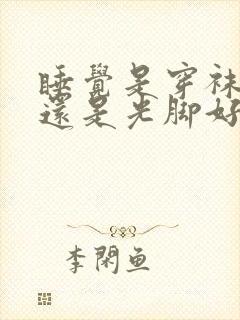 睡覺是穿袜
還是光脚好
李閑鱼